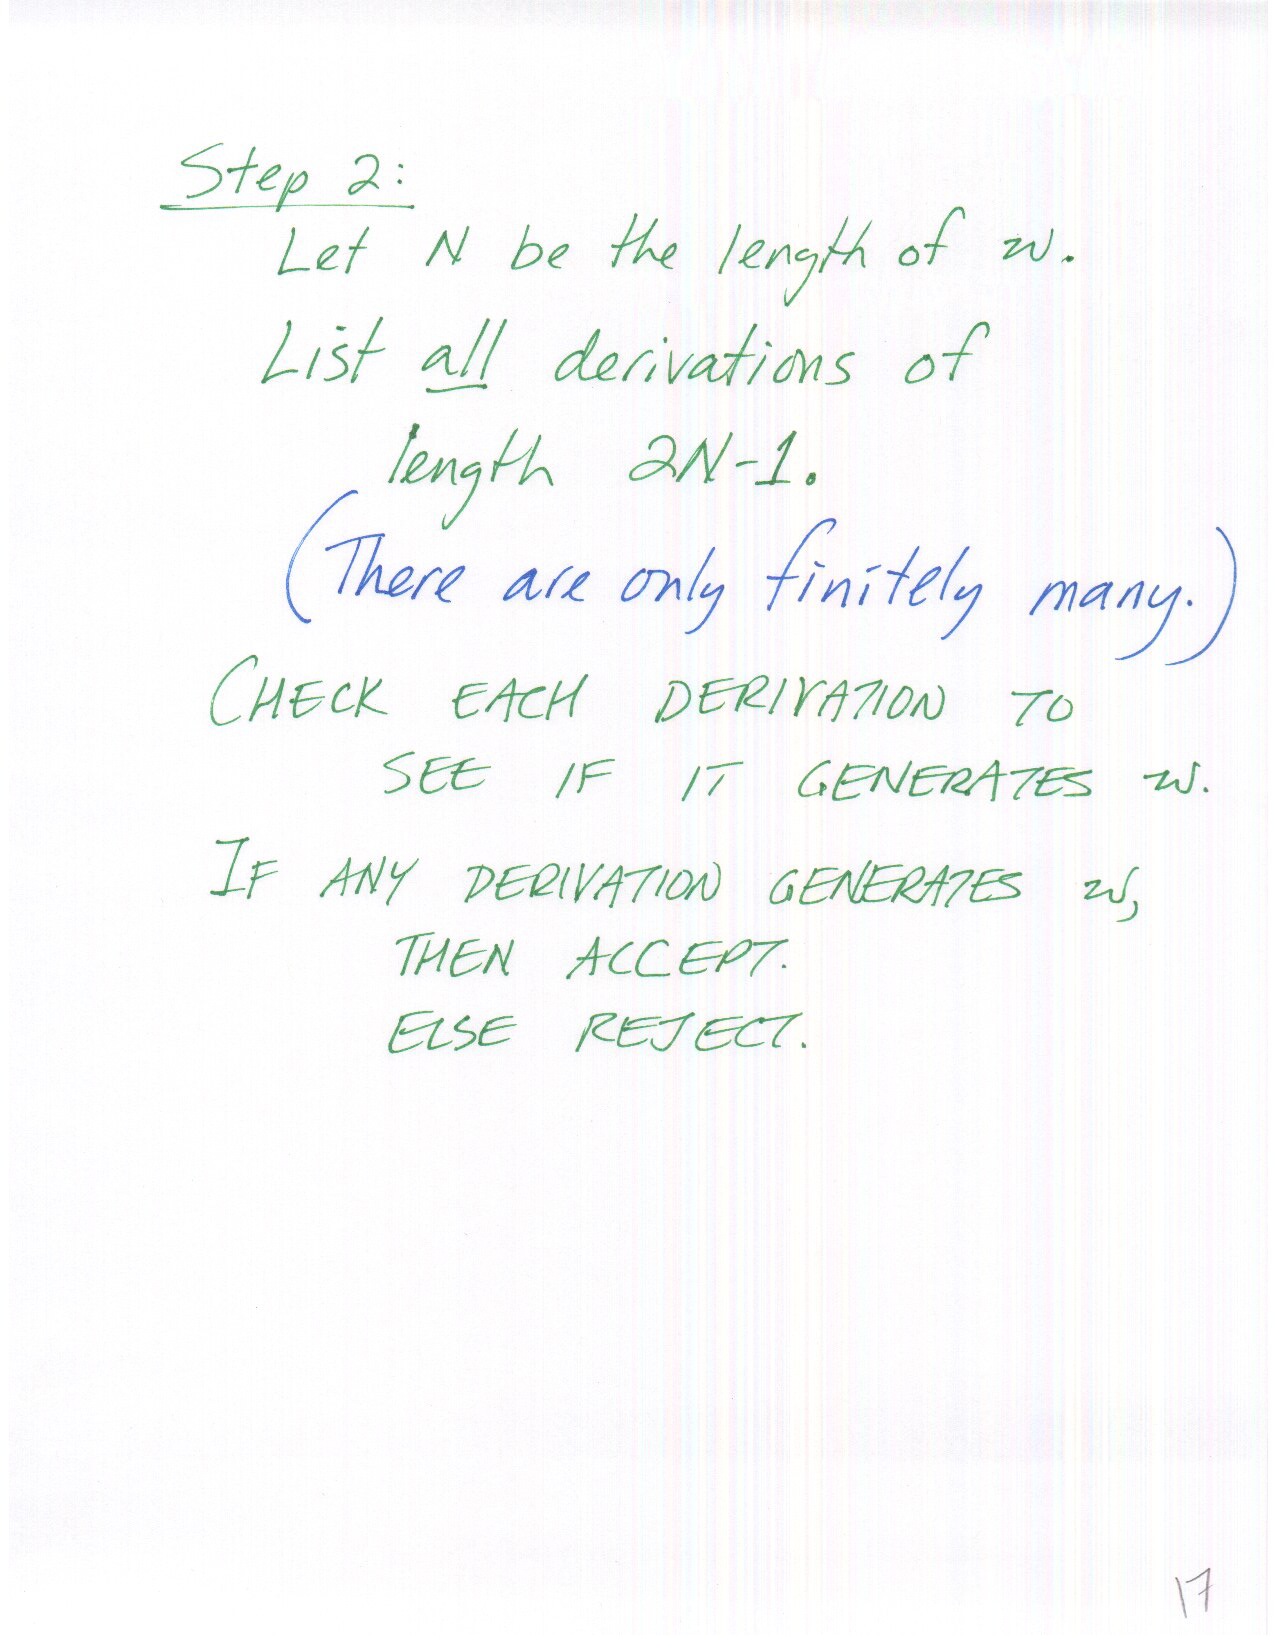 Step 2:
Let N be the length of w.
List all derivations of
length 2N-1.
(There are only finitely many.)
CHECK EACH DERIVATION TO
SEE IF IT GENERATES w.
IF ANY DERIVATION GENERATES w,
THEN ACCEPT.
ELSE REJECT.
17